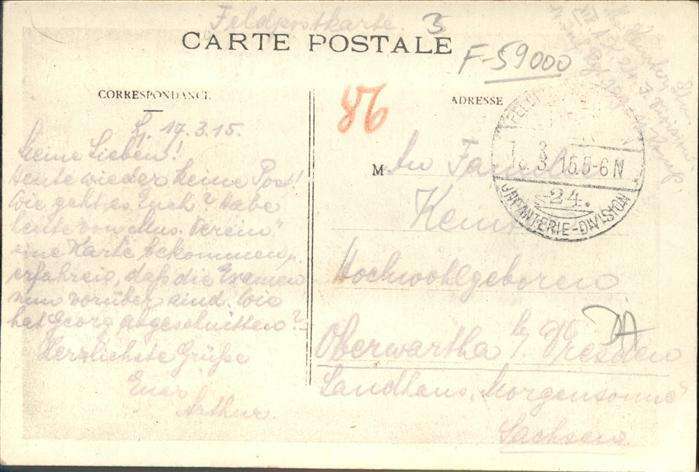 Feldpostkarte
3
CARTE POSTALE
F-59000
CORRESPONDANCE
86
ADRESSE
17.3.15.
Meine Lieben!
Heute wieder keine Post!
Wie geht es Euch? Habe
heute vom Mus. Verein
eine Karte bekommen,
erfahren, daß die Examen
nun vorüber sind. Wie
hat Georg abgeschnitten?
Herzlichste Grüße
Euer
Arthur.
M
An Familie
Hochwohlgeboren
Oberwartha b/ Dresden
Landhaus „Morgensonne"
Sachsen
3. 15. 5-6 N
24.
INFANTERIE-DIVISION